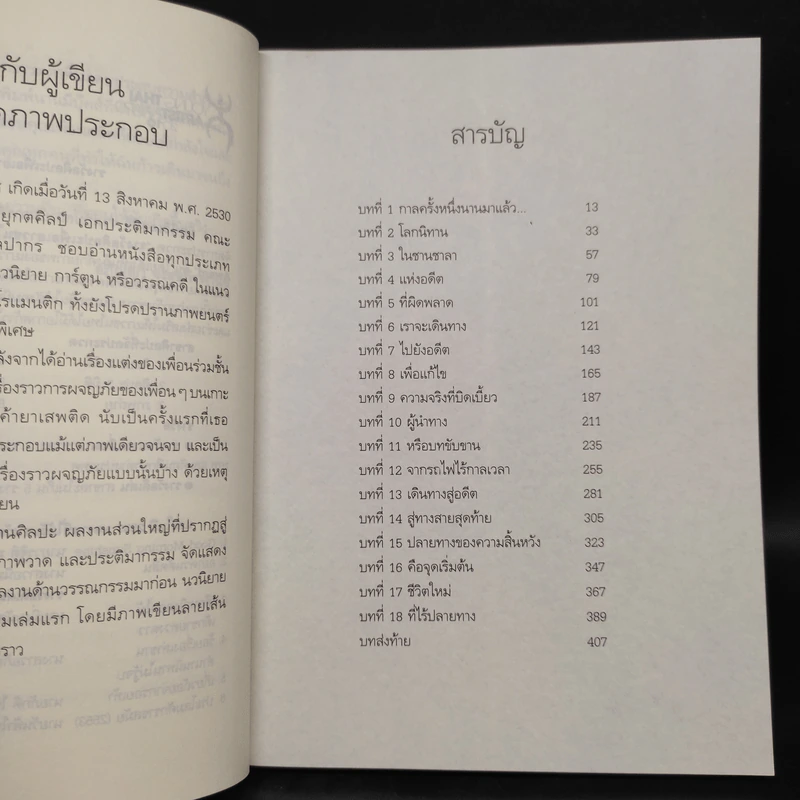 กับผู้เขียน
ภาพประกอบ
เกิดเมื่อวันที่ 13 สิงหาคม พ.ศ. 2530
ยุกตศิลป์ เอกประติมากรรม คณะ
ลปากร ชอบอ่านหนังสือทุกประเภท
วนิยาย การ์ตูน หรือวรรณคดี ในแนว
โรแมนติก ทั้งยังโปรดปรานภาพยนตร์
พิเศษ
ลังจากได้อ่านเรื่องแต่งของเพื่อนร่วมชั้น
รื่องราวการผจญภัยของเพื่อนๆ บนเกาะ
ค้ายาเสพติด นับเป็นครั้งแรกที่เธอ
ระกอบแม้แต่ภาพเดียวจนจบ และเป็น
รื่องราวผจญภัยแบบนั้นบ้าง ด้วยเหตุ
ยน
านศิลปะ ผลงานส่วนใหญ่ที่ปรากฏสู่
าพวาด และประติมากรรม จัดแสดง
ลงานด้านวรรณกรรมมาก่อน นวนิยาย
มเล่มแรก โดยมีภาพเขียนลายเส้น
ราว
สารบัญ
บทที่ 1 กาลครั้งหนึ่งนานมาแล้ว... 13
บทที่ 2 โลกนิทาน 33
บทที่ 3 ในชานชาลา 57
บทที่ 4 แห่งอดีต 79
บทที่ 5 ที่ผิดพลาด 101
บทที่ 6 เราจะเดินทาง 121
บทที่ 7 ไปยังอดีต 143
บทที่ 8 เพื่อแก้ไข 165
บทที่ 9 ความจริงที่บิดเบี้ยว 187
บทที่ 10 ผู้นำทาง 211
บทที่ 11 หรือบทขับขาน 235
บทที่ 12 จากรถไฟไร้กาลเวลา 255
บทที่ 13 เดินทางสู่อดีต 281
บทที่ 14 สู่ทางสายสุดท้าย 305
บทที่ 15 ปลายทางของความสิ้นหวัง 323
บทที่ 16 คือจุดเริ่มต้น 347
บทที่ 17 ชีวิตใหม่ 367
บทที่ 18 ที่ไร้ปลายทาง 389
บทส่งท้าย 407